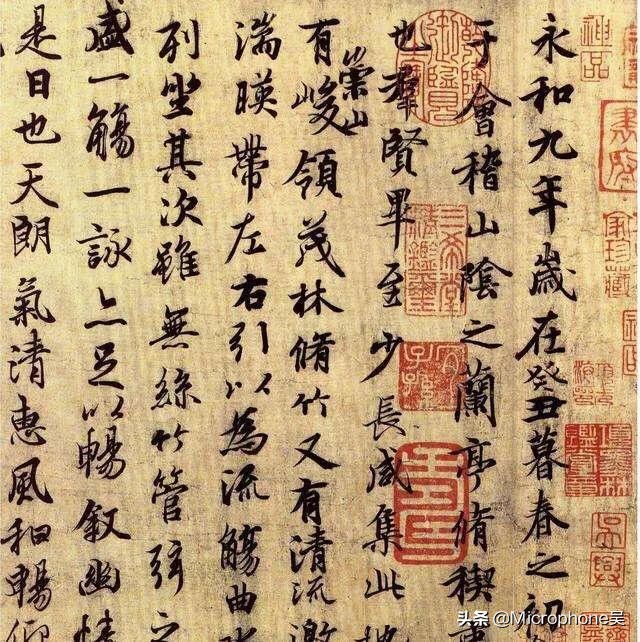 永和九年歲在癸丑暮春之初
于會稽山陰之蘭亭脩稧事
也羣賢畢至少長咸集此地
有崇山峻領茂林脩竹又有清流激
湍暎帶左右引以為流觴曲水
列坐其次雖無絲竹管弦之
盛一觴一詠亦足以暢敘幽情
是日也天朗氣清惠風和暢仰
神品
三希堂精鑑璽
宜子孫
家珍藏
头条 @Microphone吴